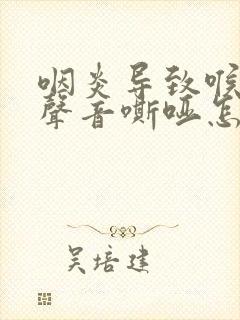 咽炎导致喉
聲音嘶哑怎
吴培建